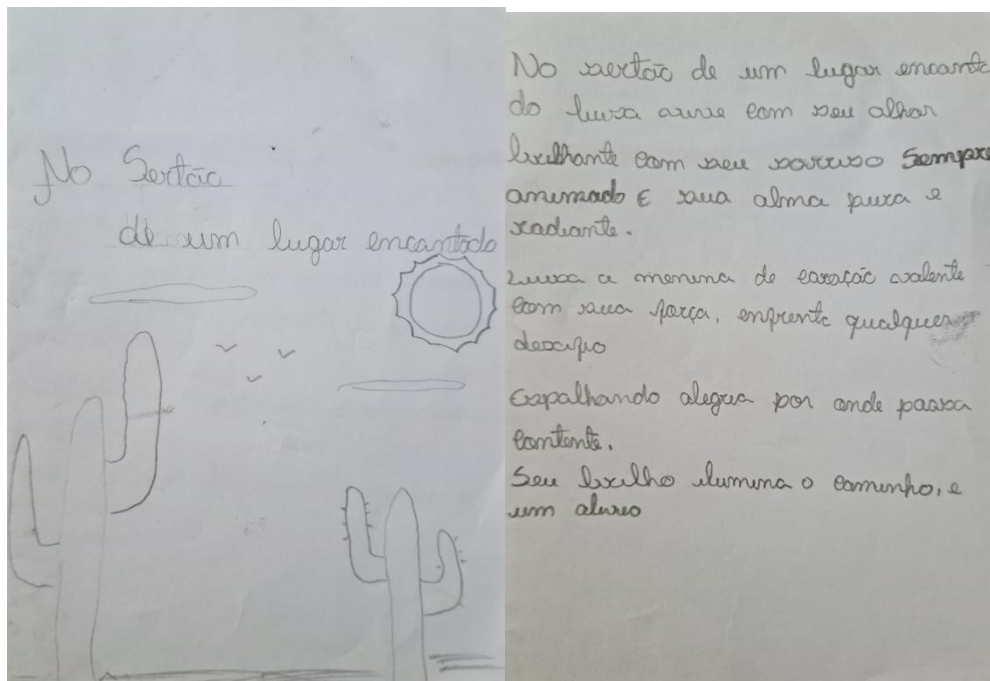 No Sertão
de um lugar encantado
No sertão de um lugar encanta
do luisa surge com seu olhar
brilhante com seu sorriso sempre
animado E sua alma pura e
radiante.
Luisa a menina de coração valente
com sua força, enfrenta qualquer
desafio
Espalhando alegria por onde passa
contente.
Seu brilho ilumina o caminho, e
um alívio